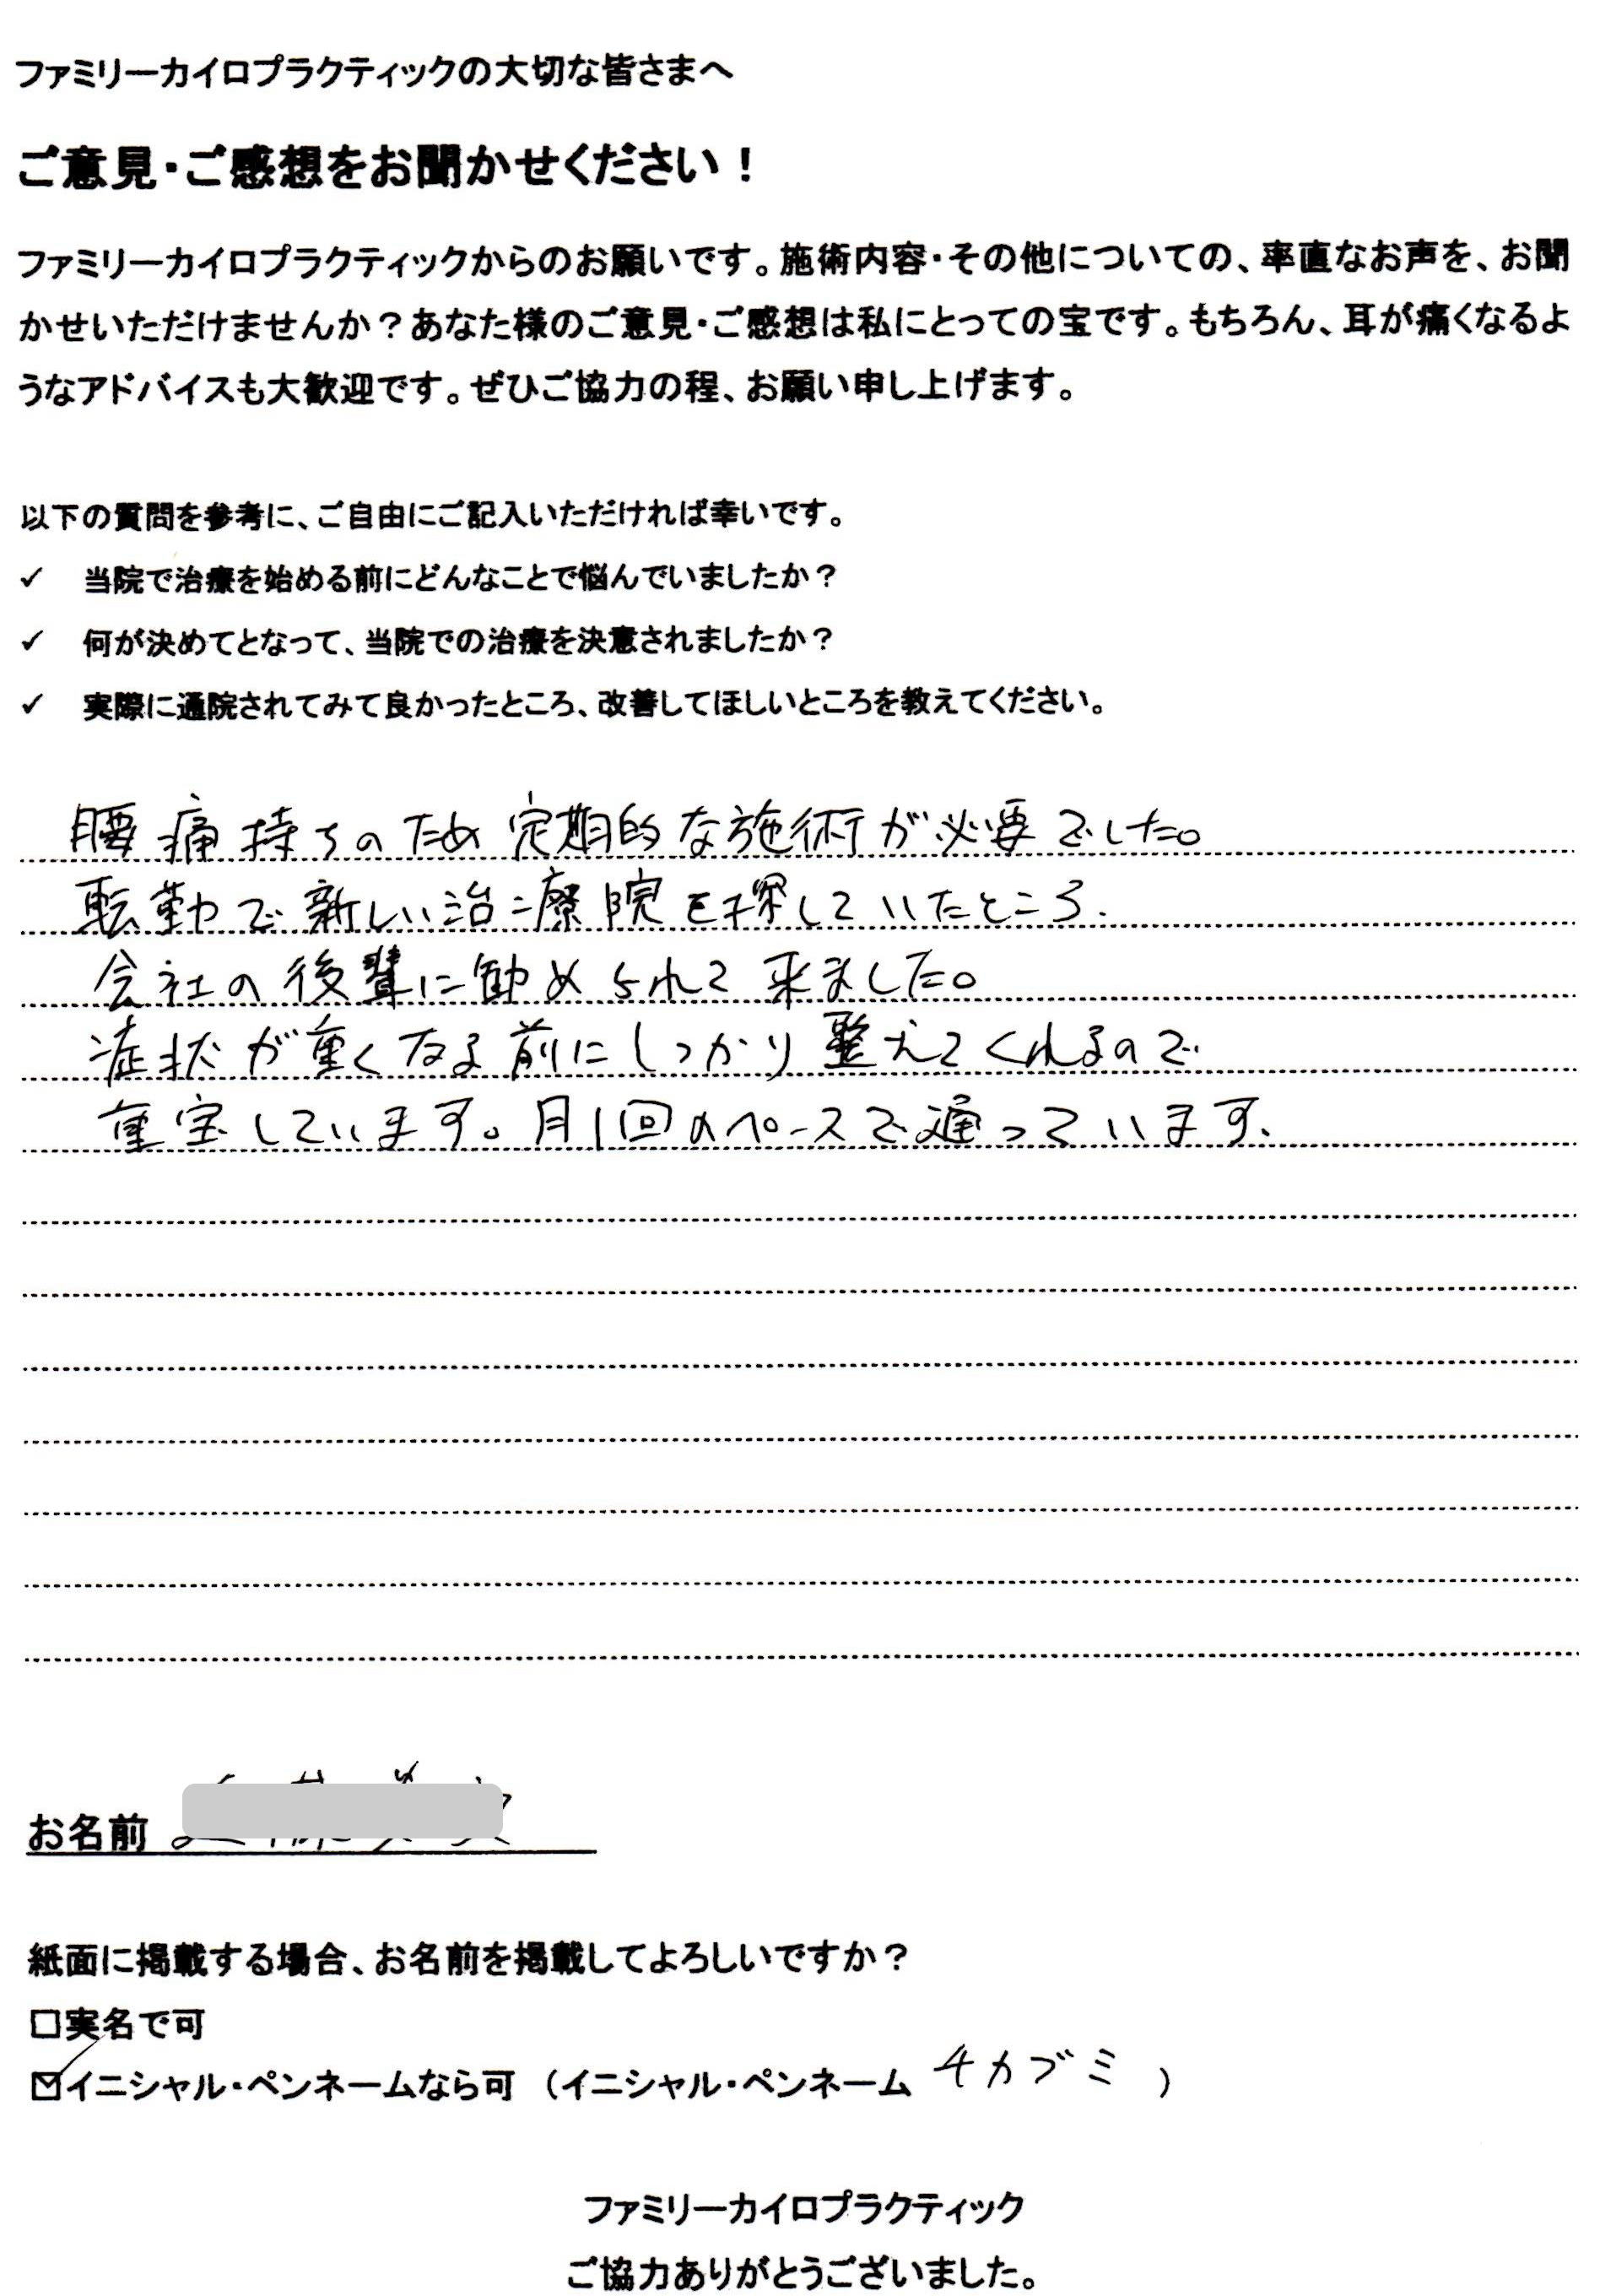 ファミリーカイロプラクティックの大切な皆さまへ
ご意見・ご感想をお聞かせください！
ファミリーカイロプラクティックからのお願いです。施術内容・その他についての、率直なお声を、お聞
かせいただけませんか？あなた様のご意見・ご感想は私にとっての宝です。もちろん、耳が痛くなるよ
うなアドバイスも大歓迎です。ぜひご協力の程、お願い申し上げます。
以下の質問を参考に、ご自由にご記入いただければ幸いです。
✓ 当院で治療を始める前にどんなことで悩んでいましたか？
✓ 何が決めてとなって、当院での治療を決意されましたか？
✓ 実際に通院されてみて良かったところ、改善してほしいところを教えてください。
腰痛持ちのため定期的な施術が必要でした。
転勤で新しい治療院を探していたところ、
会社の後輩に勧められて来ました。
症状が重くなる前にしっかり整えてくれるので
重宝しています。月1回のペースで通っています。
お名前
紙面に掲載する場合、お名前を掲載してよろしいですか？
□実名で可
☑イニシャル・ペンネームなら可（イニシャル・ペンネーム チカブミ ）
ファミリーカイロプラクティック
ご協力ありがとうございました。